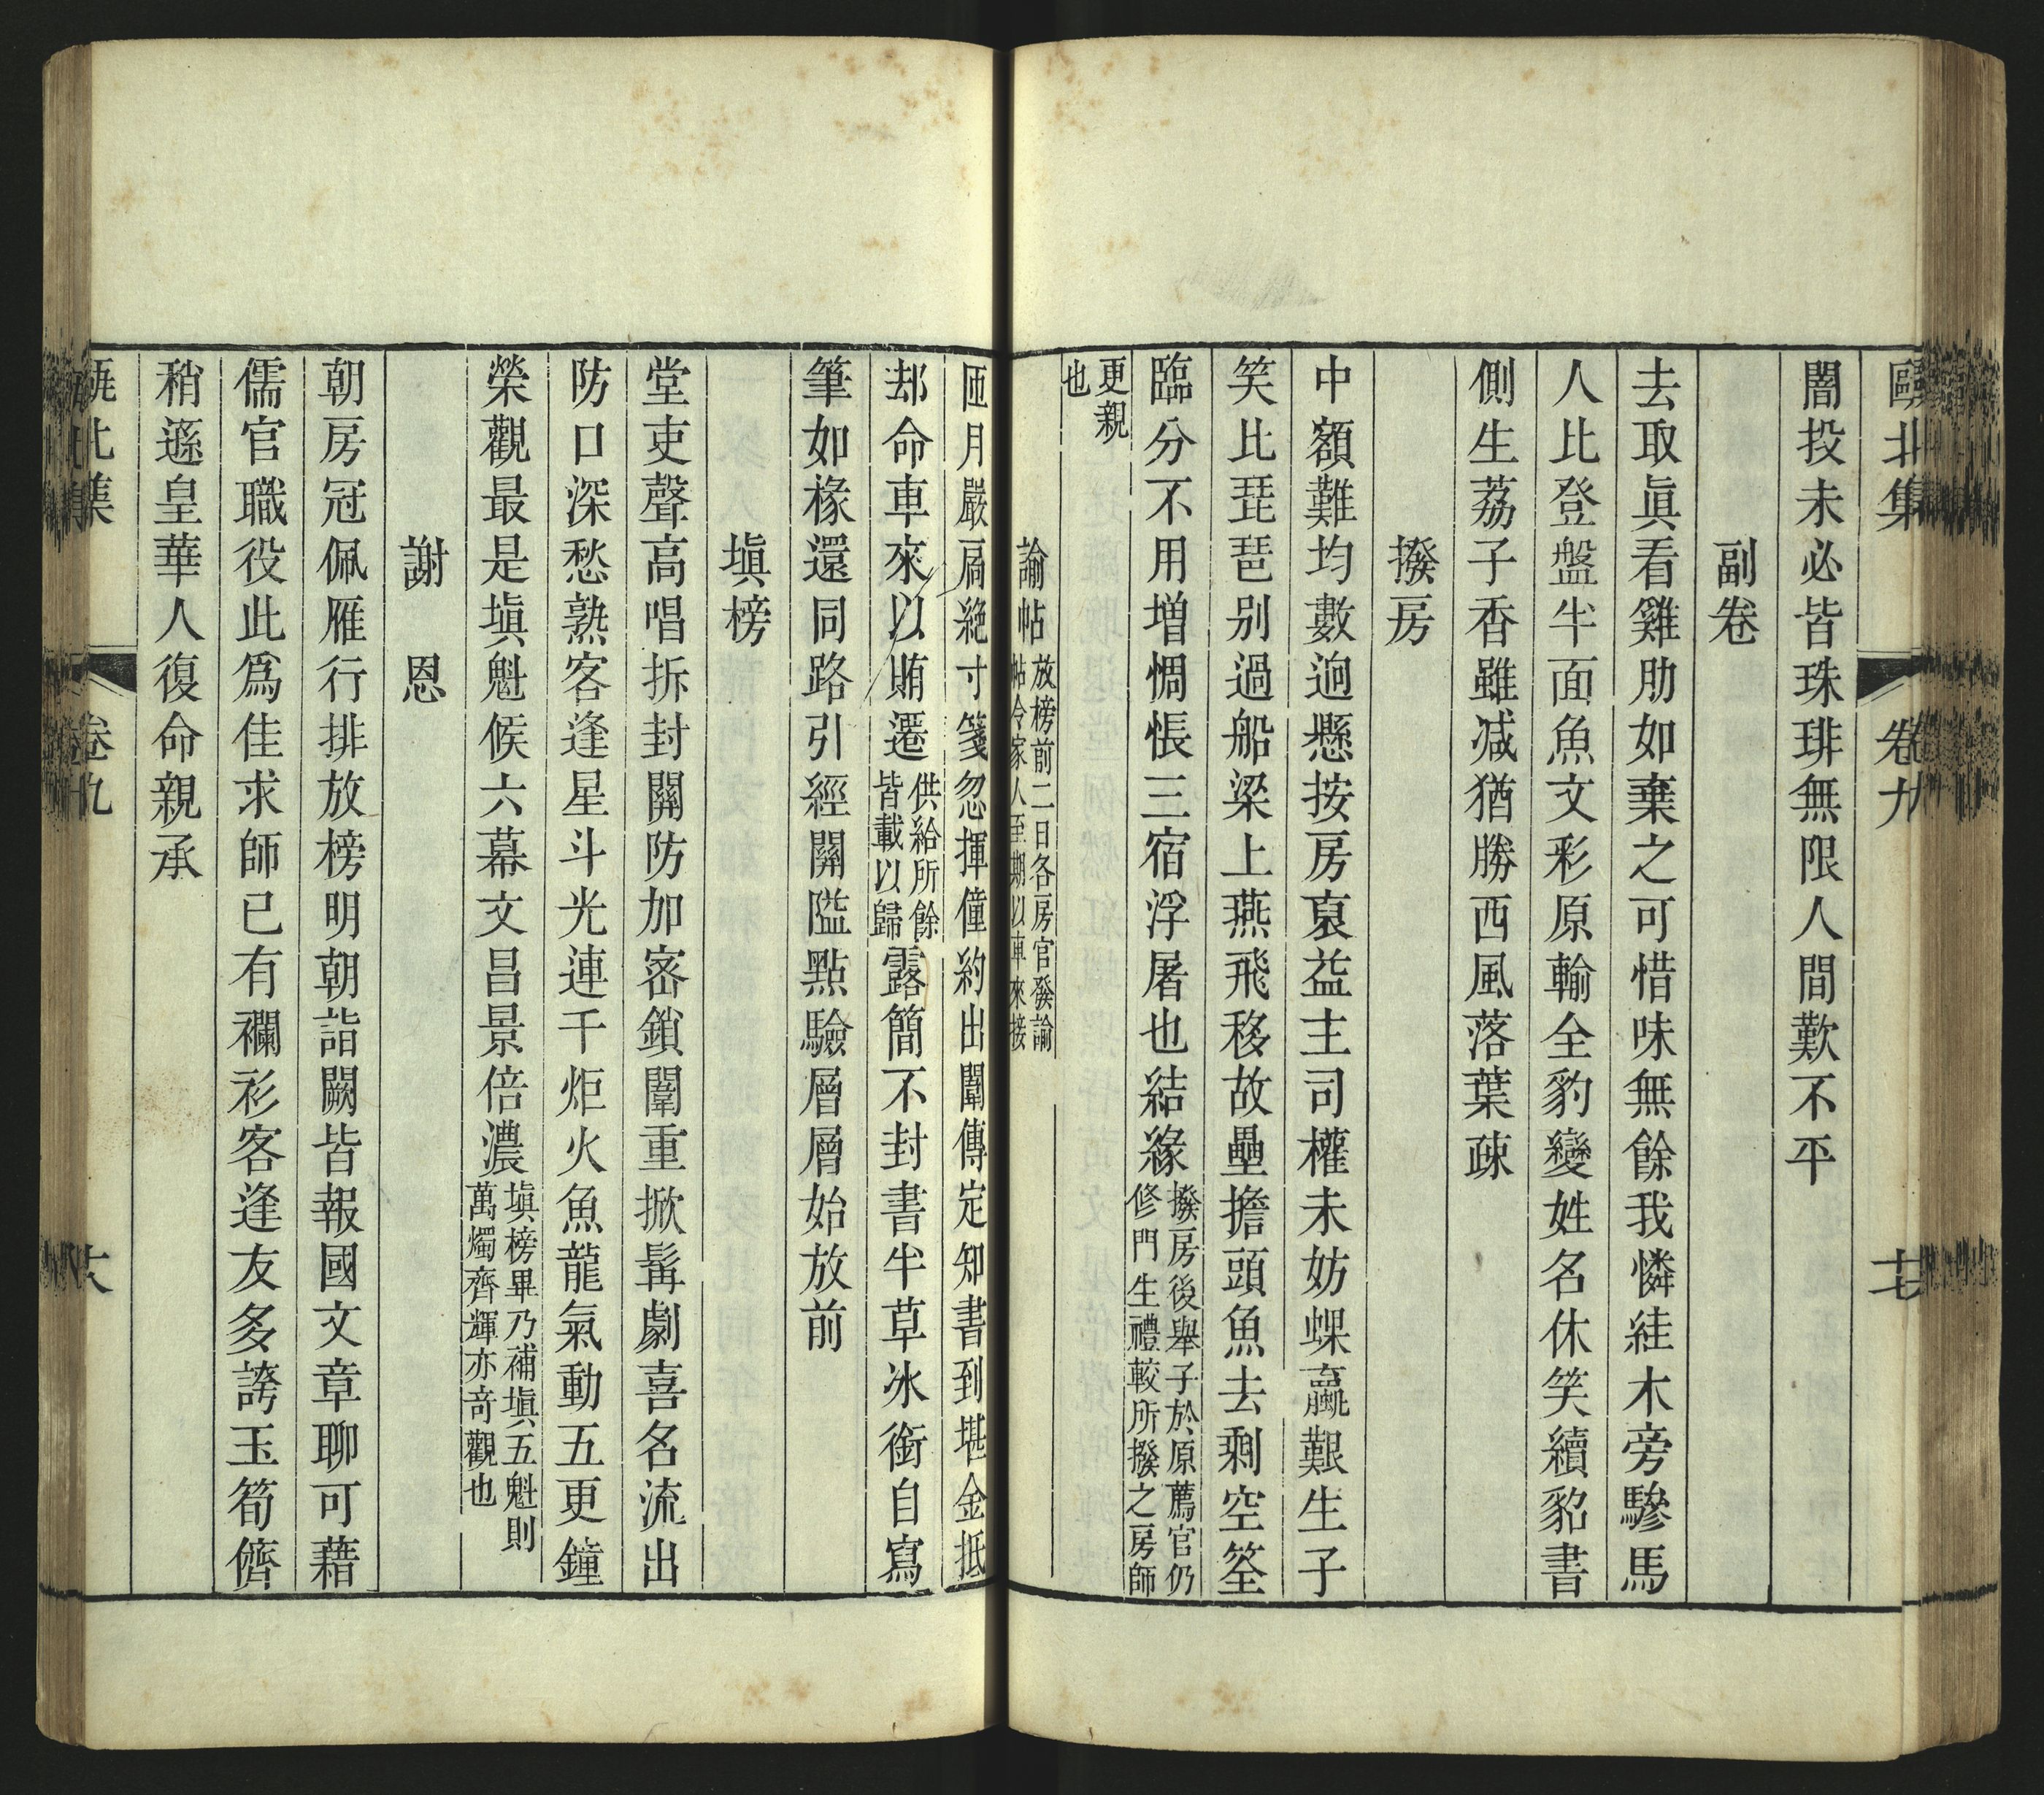 甌北集 卷九 十七
闇投未必皆珠琲無限人間歎不平
副卷
去取眞看雞肋如棄之可惜味無餘我憐絓木旁驂馬
人比登盤半面魚文彩原輸全豹變姓名休笑續貂書
側生荔子香雖减猶勝西風落葉疎
撥房
中額難均數逈懸按房裒益主司權未妨蜾蠃艱生子
笑比琵琶别過船梁上燕飛移故壘擔頭魚去剩空筌
臨分不用增惆悵三宿浮屠也結緣撥房後舉子於原薦官仍
修門生禮較所撥之房師
更親
也
諭帖放榜前二日各房官發諭
帖令家人至期以車來接
匝月嚴扃絶寸箋忽揮僮約出闈傳定知書到堪金抵
刦命車來以賄遷供給所餘
皆載以歸露簡不封書半草氷銜自寫
筆如椽還同路引經關隘點驗層層始放前
塡榜
堂吏聲高唱拆封關防加宻鎖闈重掀髯劇喜名流出
防口深愁熟客逢星斗光連千炬火魚龍氣動五更鐘
榮觀最是塡魁候六幕文昌景倍濃塡榜畢乃補塡五魁則
萬燭齊輝亦竒觀也
謝恩
朝房冠佩雁行排放榜明朝詣闕皆報國文章聊可藉
儒官職役此爲佳求師已有襴衫客逢友多誇玉筍儕
稍遜皇華人復命親承
甌北集 卷九 十八